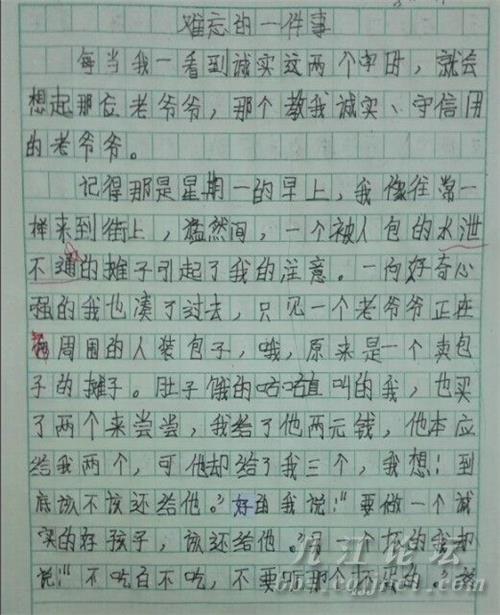 难忘的一件事
每当我一看到诚实这两个字时，就会
想起那位老爷爷，那个教我诚实、守信用
的老爷爷。
记得那是星期一的早上，我像往常一
样来到街上，猛然间，一个被人包的水泄
不通的摊子引起了我的注意。一向好奇心
强的我也凑了过去，只见一个老爷爷正在
周围的人装包子，哦，原来是一个卖包
子的摊子。肚子饿的咕咕直叫的我，也买
了两个来尝尝，我给了他两元钱，他本应
给我两个，可他却给了我三个，我想：到
底该不该还给他。”好的我说：“要做一个诚
实的好孩子，该还给他。”另一个坏的我却
说：“不吃白不吃，不要听那个好的。
九江论坛